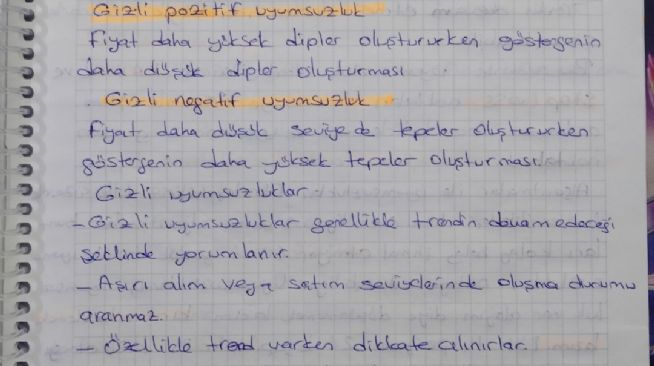 Gizli pozitif uyumsuzluk
Fiyat daha yüksek dipler oluştururken göstergenin
daha düşük dipler oluşturması
Gizli negatif uyumsuzluk
Fiyat daha düşük seviyede tepeler oluştururken
göstergenin daha yüksek tepeler oluşturması.
Gizli uyumsuzluklar
- Gizli uyumsuzluklar genellikle trendin devam edeceği
şeklinde yorumlanır.
- Aşırı alım veya satım seviyelerinde oluşma durumu
aranmaz.
- Özellikle trend varken dikkate alınırlar.